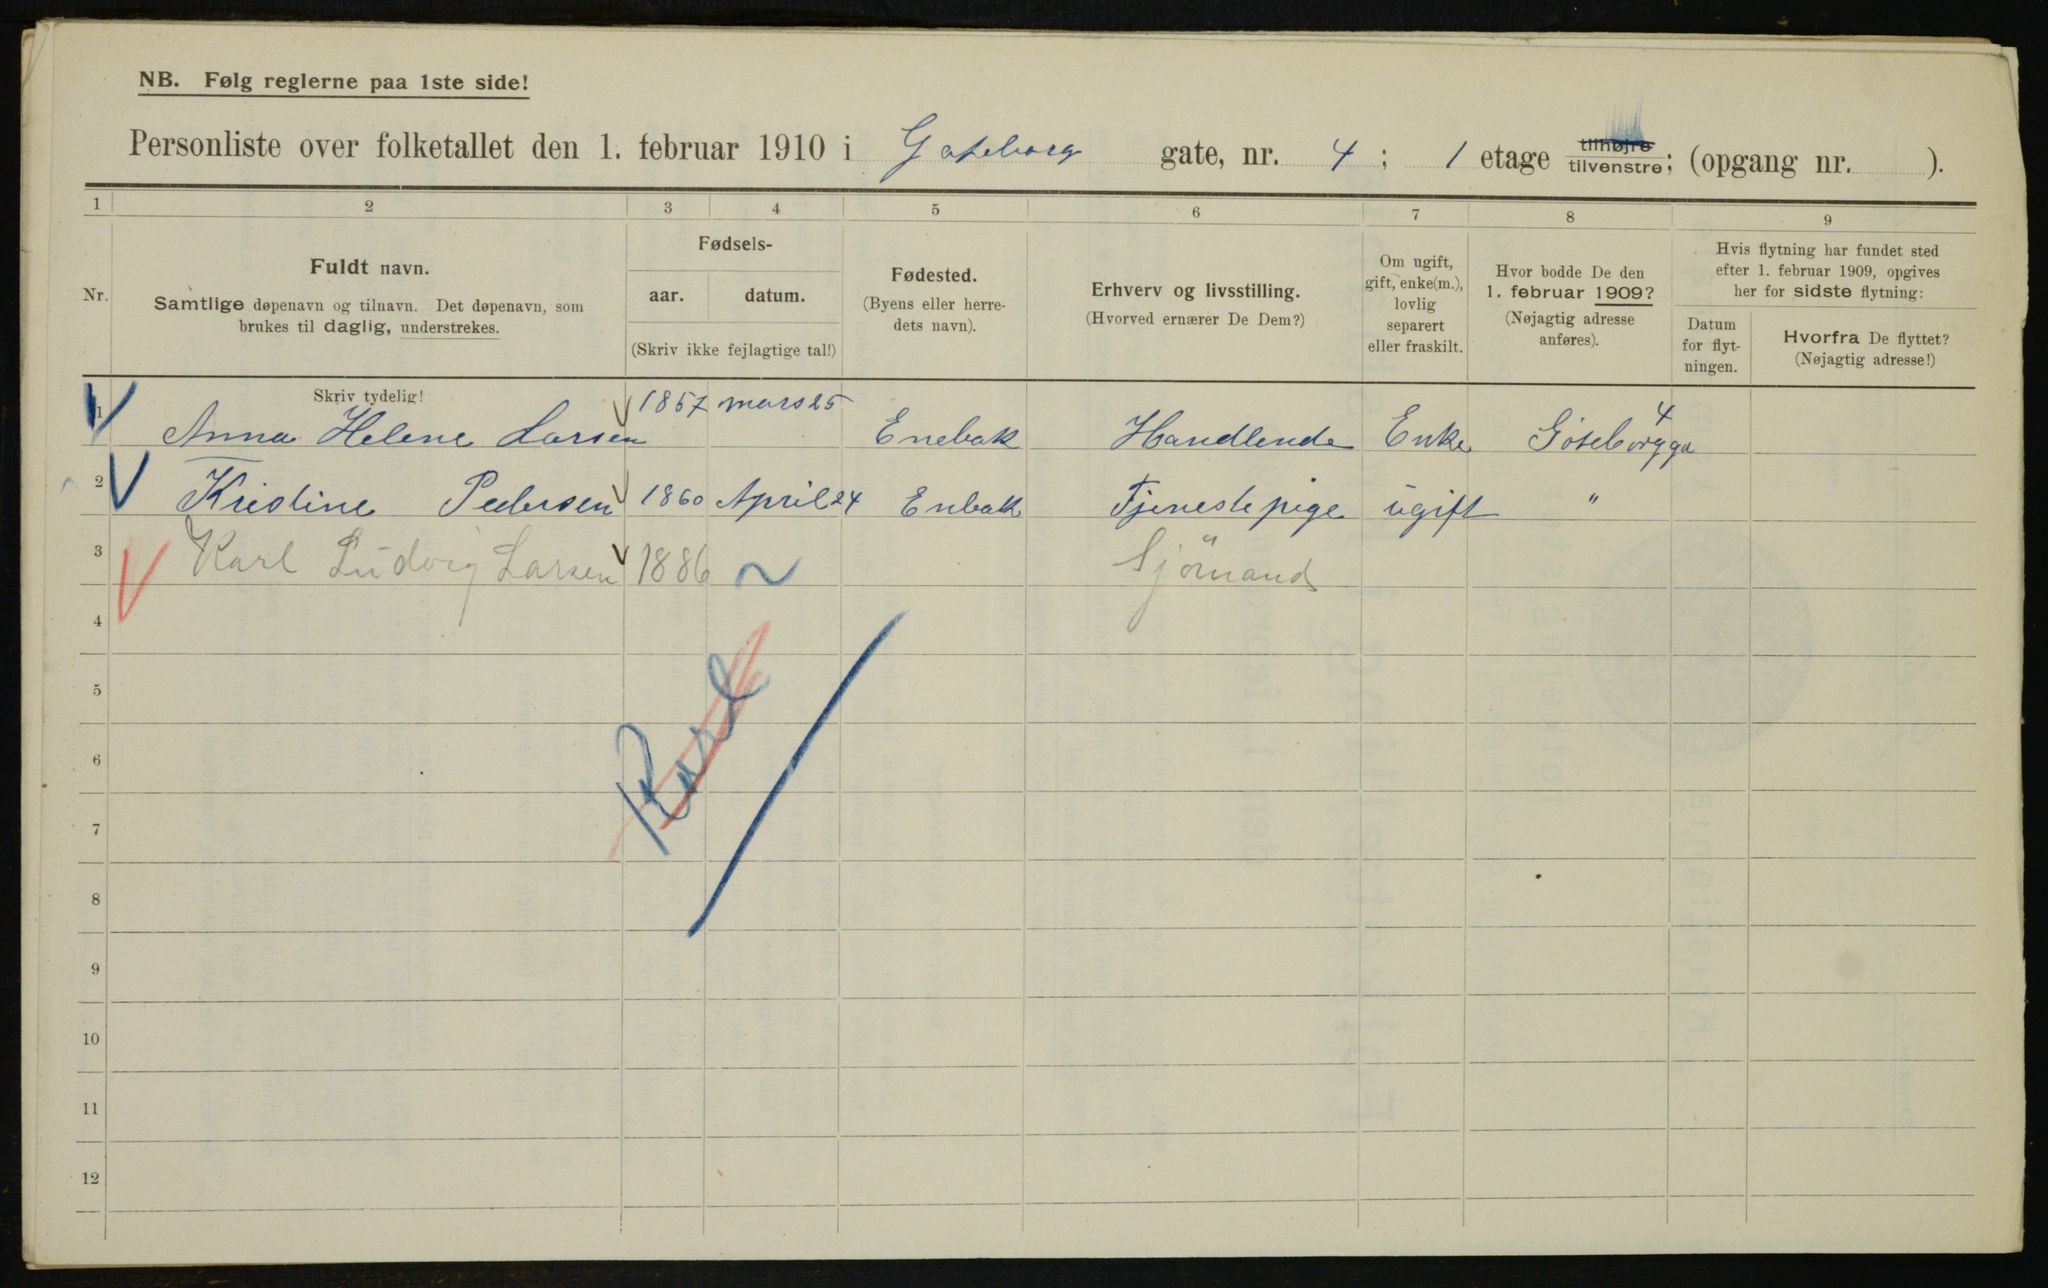 NB. Følg reglerne paa 1ste side!
Personliste over folketallet den 1. februar 1910 i Goteborg gate, nr. 4 ; 1 etage tilhøjre tilvenstre; (opgang nr. ).
1 2 3 4 5 6 7 8 9
Nr.
Fuldt navn.
Samtlige døpenavn og tilnavn. Det døpenavn, som
brukes til daglig, understrekes.
Fødsels-
aar. datum.
(Skriv ikke fejlagtige tal!)
Fødested.
(Byens eller herre-
dets navn).
Erhverv og livsstilling.
(Hvorved ernærer De Dem?)
Om ugift,
gift, enke(m.),
lovlig
separert
eller fraskilt.
Hvor bodde De den
1. februar 1909?
(Nøjagtig adresse
anføres).
Hvis flytning har fundet sted
efter 1. februar 1909, opgives
her for sidste flytning:
Datum
for flyt-
ningen.
Hvorfra De flyttet?
(Nøjagtig adresse!)
Skriv tydelig!
1 Anna Helene Larsen 1857 mars 25 Enebak Handlende Enke Göteborgga 4
2 Kristine Pedersen 1860 April 24 Enbak Tjenestepige ugift "
3 Karl Ludvig Larsen 1886 ~ Sjömand
4
5
6
7
8
9
10
11
12